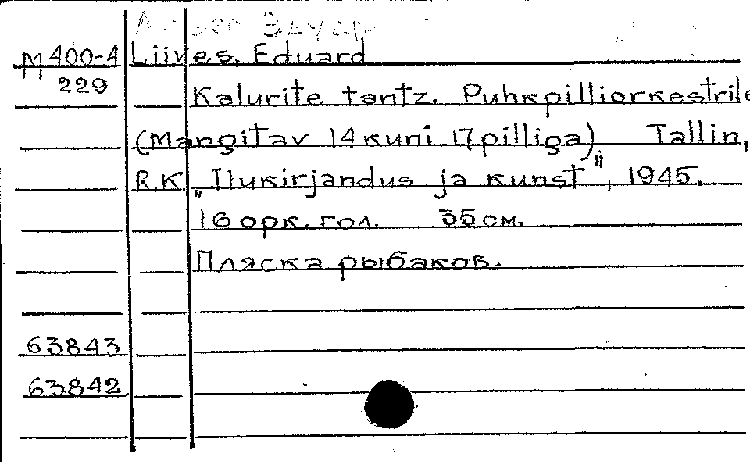 M 400-4 Liives, Eduard
229 Kalurite tantz. Puhkpilliorkestrile
(Mängitav 14 kuni 17 pilliga) Tallin,
R.K. „Ilukirjandus ja kunst", 1945.
16 орк. гол. 35 см.
Пляска рыбаков.
63843
63842